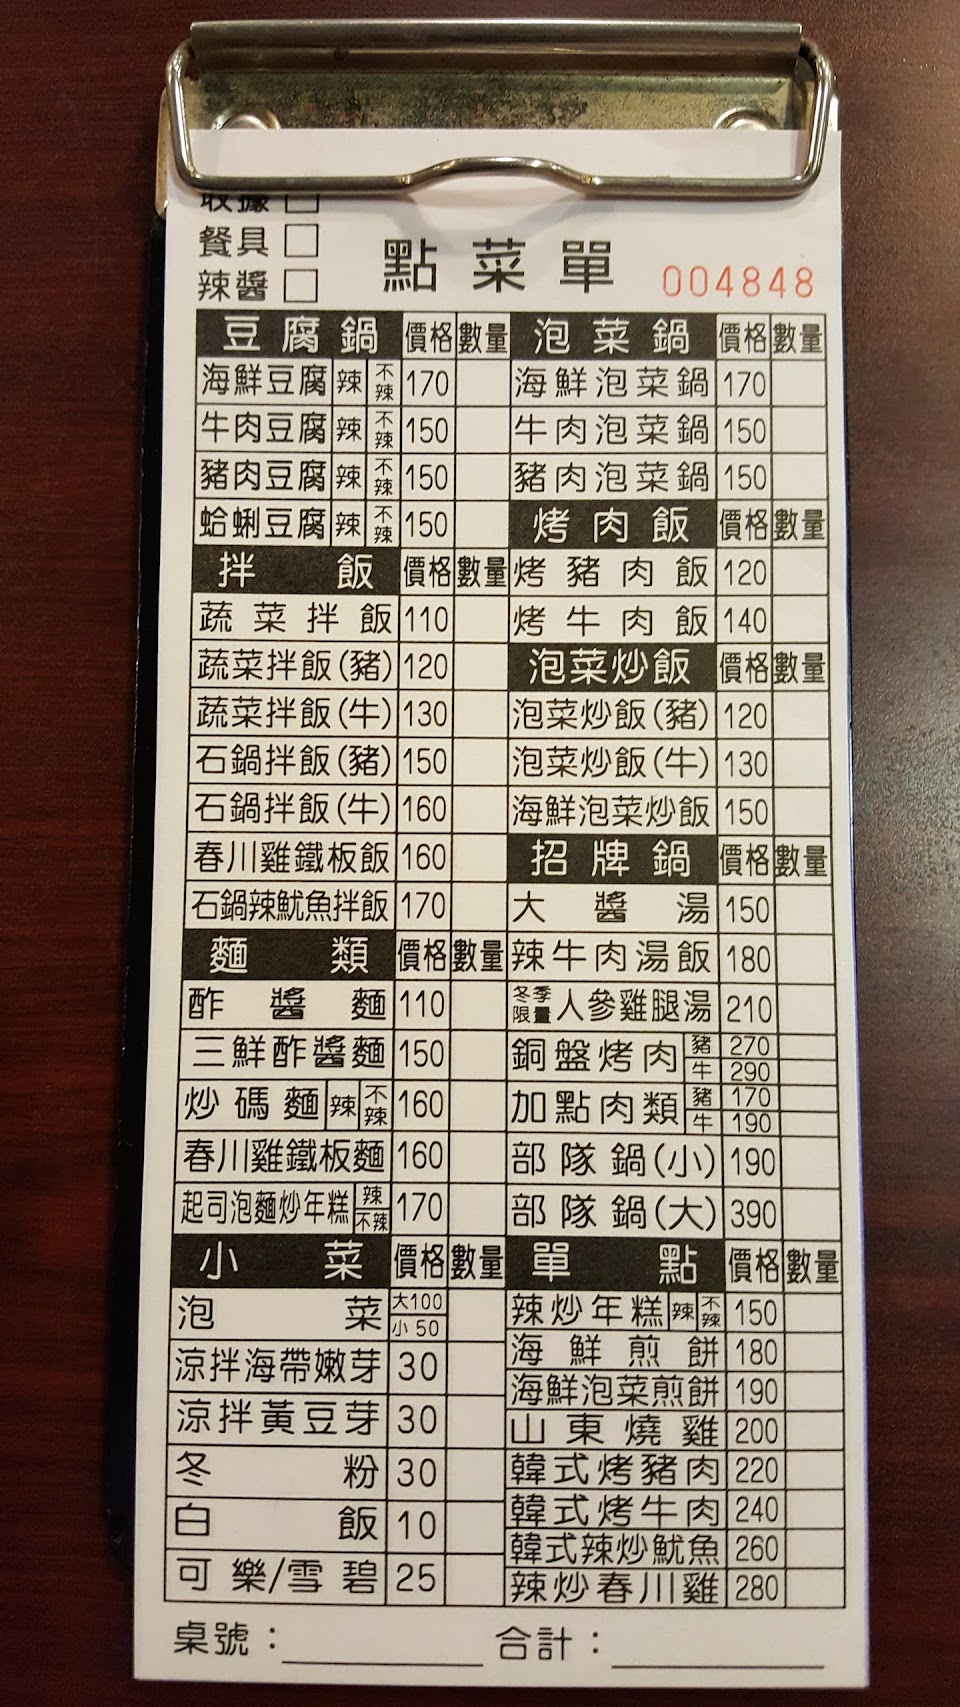 收據 □
餐具 □
辣醬 □
點菜單
004848
豆腐鍋 價格 數量
海鮮豆腐 辣 不辣 170
牛肉豆腐 辣 不辣 150
豬肉豆腐 辣 不辣 150
蛤蜊豆腐 辣 不辣 150
拌飯 價格 數量
蔬菜拌飯 110
蔬菜拌飯(豬) 120
蔬菜拌飯(牛) 130
石鍋拌飯(豬) 150
石鍋拌飯(牛) 160
春川雞鐵板飯 160
石鍋辣魷魚拌飯 170
麵類 價格 數量
酢醬麵 110
三鮮酢醬麵 150
炒碼麵 辣 不辣 160
春川雞鐵板麵 160
起司泡麵炒年糕 辣 不辣 170
小菜 價格 數量
泡菜 大100 小50
涼拌海帶嫩芽 30
涼拌黃豆芽 30
冬粉 30
白飯 10
可樂/雪碧 25
泡菜鍋 價格 數量
海鮮泡菜鍋 170
牛肉泡菜鍋 150
豬肉泡菜鍋 150
烤肉飯 價格 數量
烤豬肉飯 120
烤牛肉飯 140
泡菜炒飯 價格 數量
泡菜炒飯(豬) 120
泡菜炒飯(牛) 130
海鮮泡菜炒飯 150
招牌鍋 價格 數量
大醬湯 150
辣牛肉湯飯 180
冬季限量 人參雞腿湯 210
銅盤烤肉 豬 270 牛 290
加點肉類 豬 170 牛 190
部隊鍋(小) 190
部隊鍋(大) 390
單點 價格 數量
辣炒年糕 辣 不辣 150
海鮮煎餅 180
海鮮泡菜煎餅 190
山東燒雞 200
韓式烤豬肉 220
韓式烤牛肉 240
韓式辣炒魷魚 260
辣炒春川雞 280
桌號： 合計：